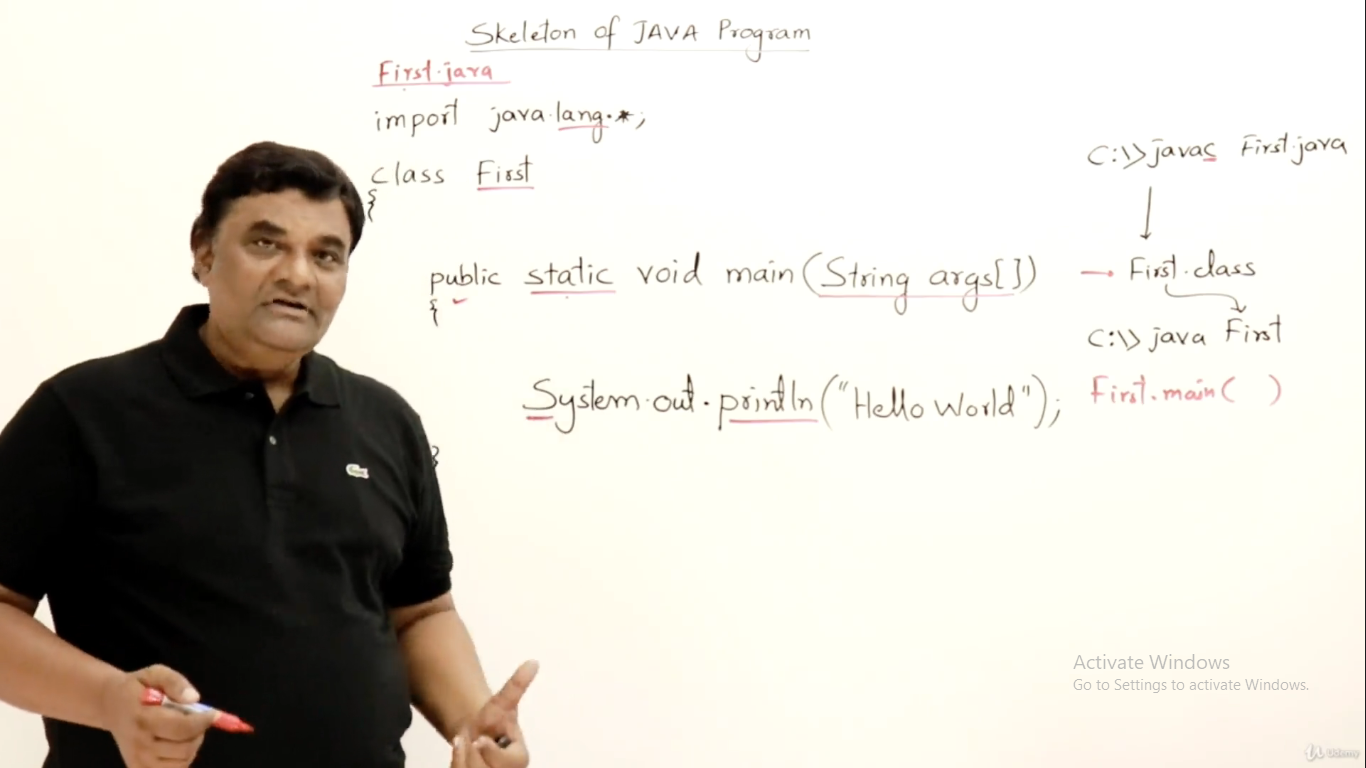 Skeleton of JAVA Program
First.java
import java.lang.*;
class First
{
public static void main(String args[])
{
System.out.println("Hello World");
}
C:\> javac First.java
First.class
C:\> java First
First.main( )
Activate Windows
Go to Settings to activate Windows.
Udemy